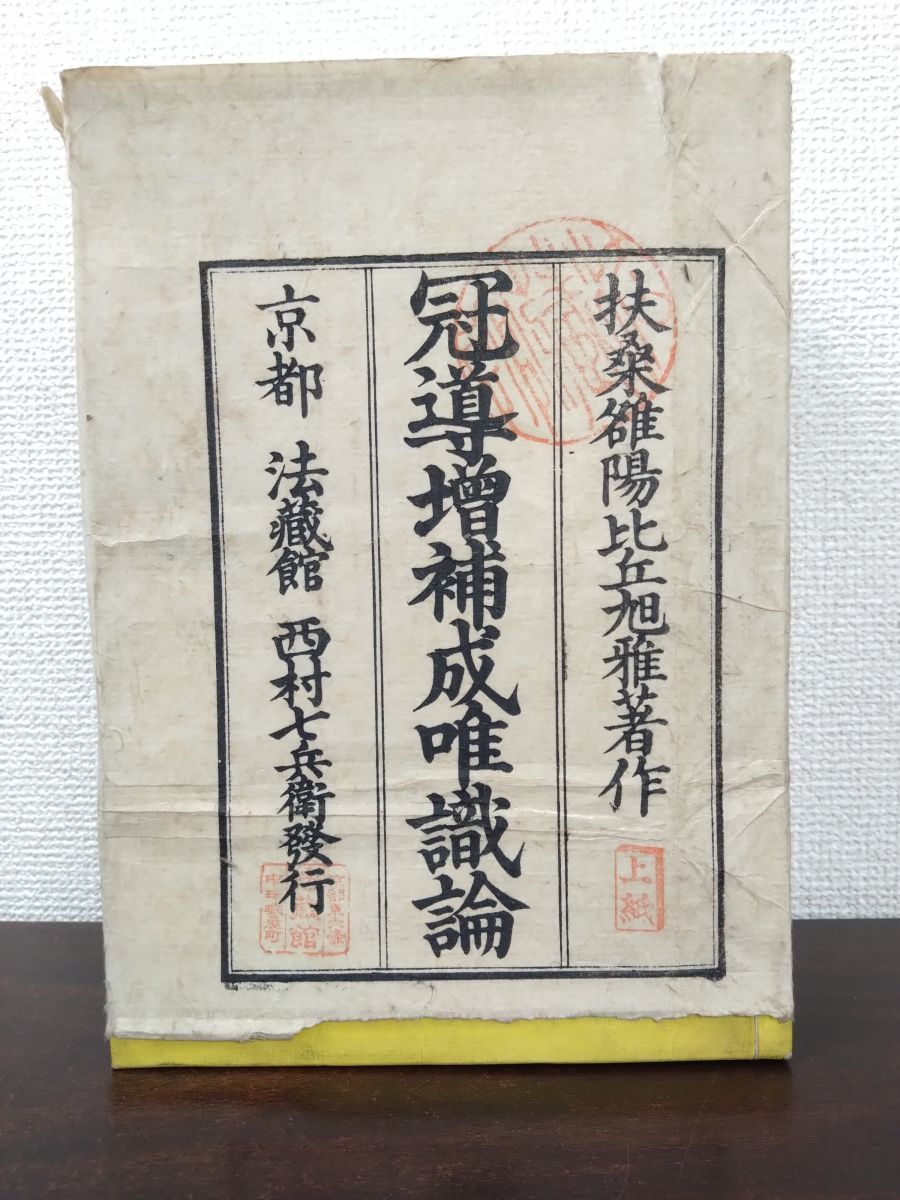 扶桑雒陽比丘旭雅著作
上紙
冠導增補成唯識論
京都 法藏館 西村七兵衛發行